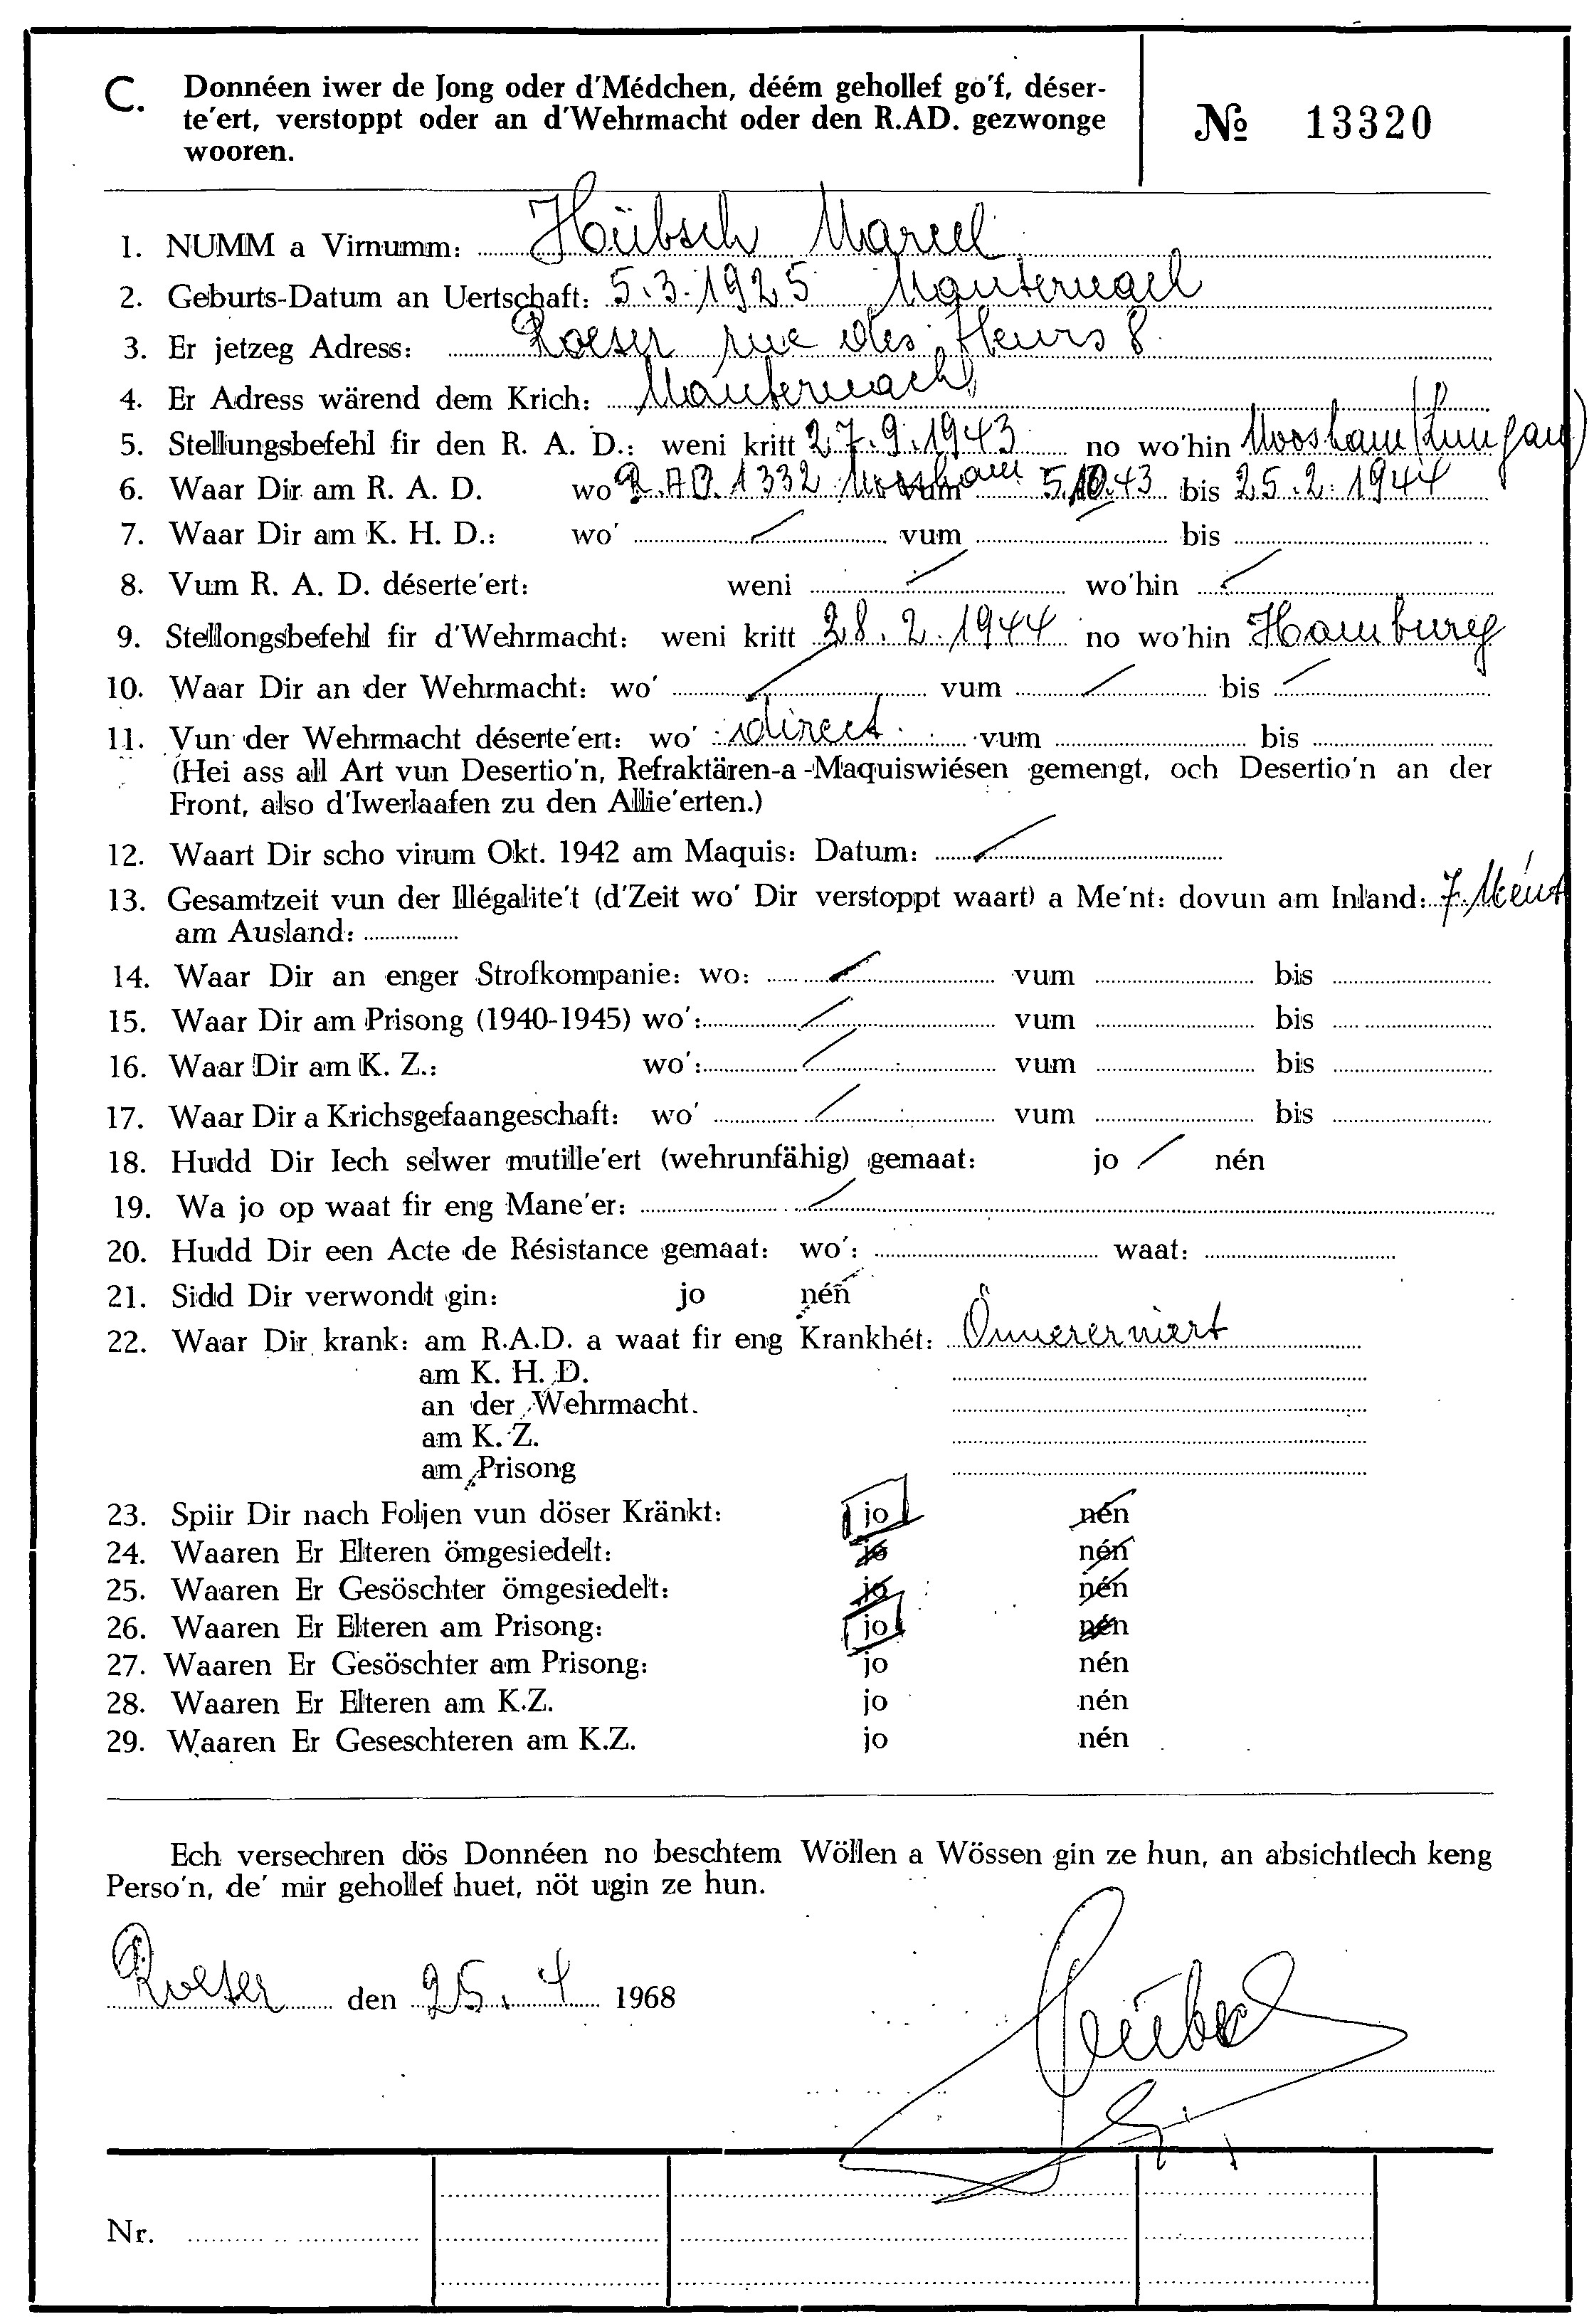 C. Donnéen iwer de Jong oder d'Médchen, déém gehollef go'f, déser-
te'ert, verstoppt oder an d'Wehrmacht oder den R.AD. gezwonge
wooren.
№ 13320
1. NUMM a Virnumm: Hübsch Marcel
2. Geburts-Datum an Uertschaft: 5.3.1925
3. Er jetzeg Adress: Roeser rue des fleurs 8
4. Er Adress wärend dem Krich: Manternach
5. Stellungsbefehl fir den R. A. D.: weni kritt 27.9.1943 no wo'hin Moosham (Lungau)
6. Waar Dir am R. A. D. wo R.AD. 1332 Moosham vum 5.10.43 bis 25.2.1944
7. Waar Dir am K. H. D.: wo' / vum / bis
8. Vum R. A. D. déserte'ert: weni / wo'hin /
9. Stellongsbefehl fir d'Wehrmacht: weni kritt 28.2.1944 no wo'hin Hamburg
10. Waar Dir an der Wehrmacht: wo' / vum / bis /
11. Vun der Wehrmacht déserte'ert: wo' direct vum bis
(Hei ass all Art vun Desertio'n, Refraktären-a-Maquiswiésen gemengt, och Desertio'n an der
Front, also d'Iwerlaafen zu den Allie'erten.)
12. Waart Dir scho virum Okt. 1942 am Maquis: Datum: /
13. Gesamtzeit vun der Illégalite't (d'Zeit wo' Dir verstoppt waart) a Me'nt: dovun am Inland: 7 Mént
am Ausland:
14. Waar Dir an enger Strofkompanie: wo: / vum bis
15. Waar Dir am Prisong (1940-1945) wo': / vum bis
16. Waar Dir am K. Z.: wo': / vum bis
17. Waar Dir a Krichsgefaangeschaft: wo' / vum bis
18. Hudd Dir Iech selwer mutille'ert (wehrunfähig) gemaat: jo / nén
19. Wa jo op waat fir eng Mane'er: /
20. Hudd Dir een Acte de Résistance gemaat: wo': waat:
21. Sidd Dir verwondt gin: jo nén
22. Waar Dir krank: am R.A.D. a waat fir eng Krankhét:
am K. H. D.
an der Wehrmacht.
am K. Z.
am Prisong
23. Spiir Dir nach Foljen vun döser Kränkt: jo nén
24. Waaren Er Elteren ömgesiedelt: jo nén
25. Waaren Er Gesöschter ömgesiedelt: jo nén
26. Waaren Er Elteren am Prisong: jo nén
27. Waaren Er Gesöschter am Prisong: jo nén
28. Waaren Er Elteren am K.Z. jo nén
29. Waaren Er Geseschteren am K.Z. jo nén
Ech versechren dös Donnéen no beschtem Wöllen a Wössen gin ze hun, an absichtlech keng
Perso'n, de' mir gehollef huet, nöt ugin ze hun.
Roeser den 25. 4 1968
Hübsch
Nr.